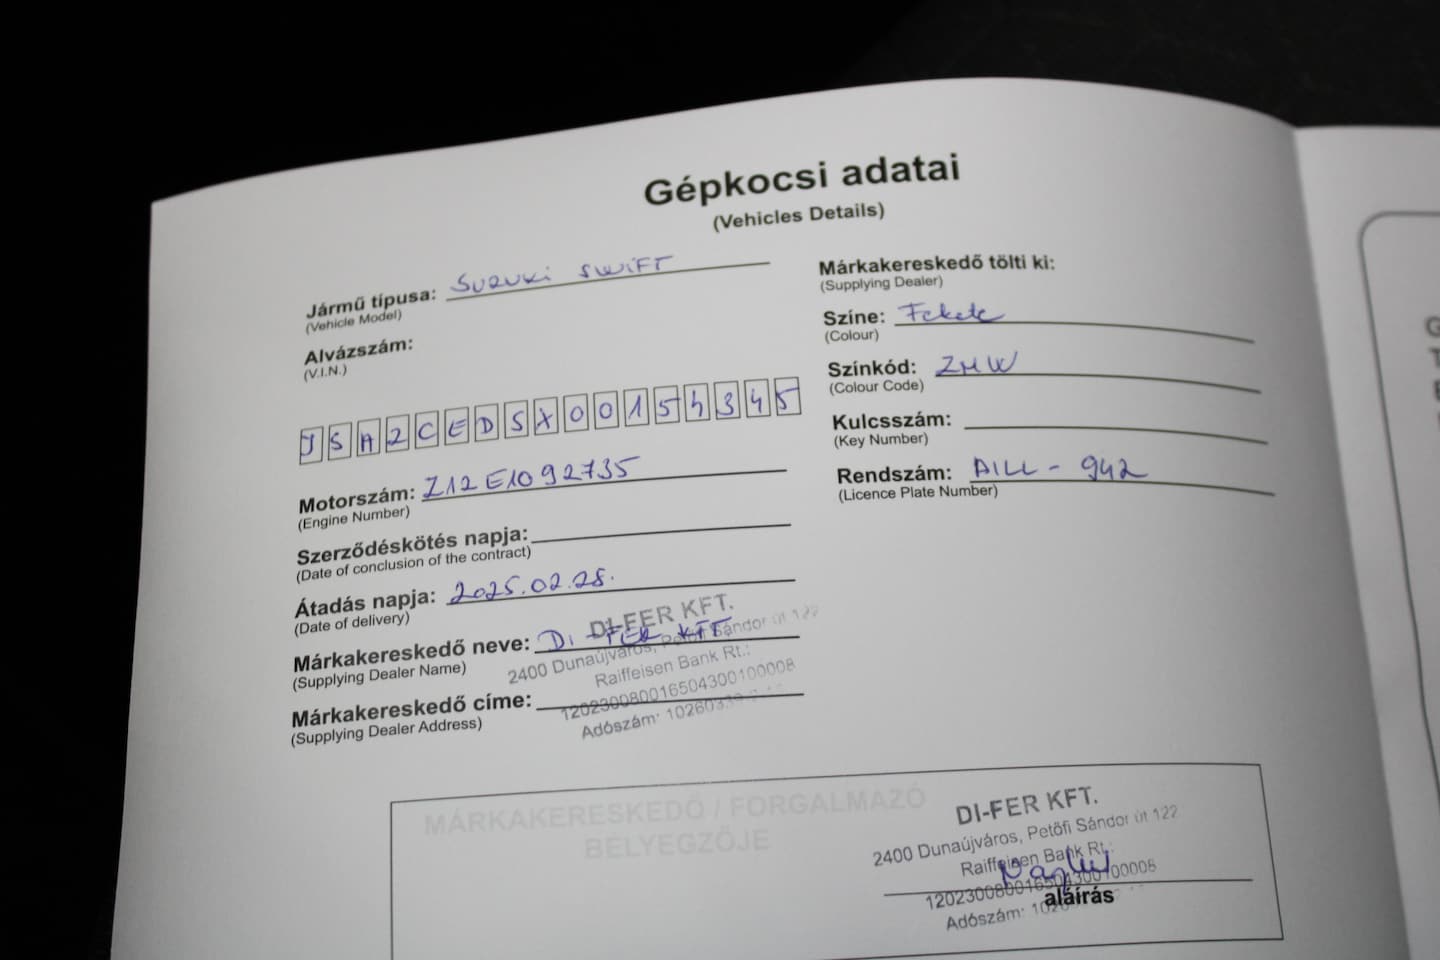 Gépkocsi adatai
(Vehicles Details)
Jármű típusa: SUZUKI SWIFT
(Vehicle Model)
Alvázszám:
(V.I.N.)
JSA2CEDSX00154345
Motorszám: Z12E1092735
(Engine Number)
Szerződéskötés napja:
(Date of conclusion of the contract)
Átadás napja: 2025.02.28.
(Date of delivery)
Márkakereskedő neve: Di-FER KFT
(Supplying Dealer Name)
Márkakereskedő címe:
(Supplying Dealer Address)
DI-FER KFT.
2400 Dunaújváros, Petőfi Sándor út 122
Raiffeisen Bank Rt.:
120230080016504300100008
Adószám: 10260339
Márkakereskedő tölti ki:
(Supplying Dealer)
Színe: Fekete
(Colour)
Színkód: ZMW
(Colour Code)
Kulcsszám:
(Key Number)
Rendszám: AILL-942
(Licence Plate Number)
MÁRKAKERESKEDŐ / FORGALMAZÓ
BÉLYEGZŐJE
DI-FER KFT.
2400 Dunaújváros, Petőfi Sándor út 122
Raiffeisen Bank Rt.:
120230080016504300100008
Adószám:
aláírás